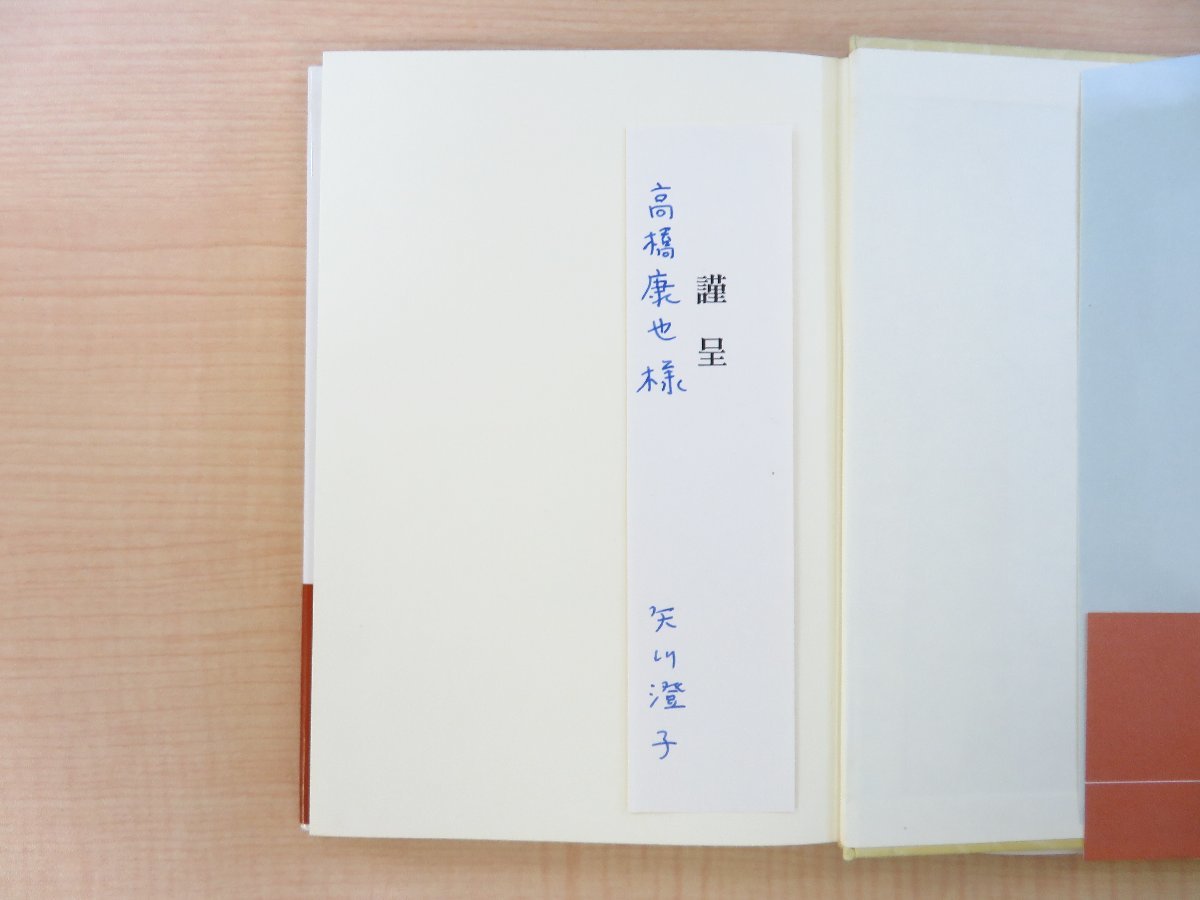 謹呈
高橋康也様
矢川澄子